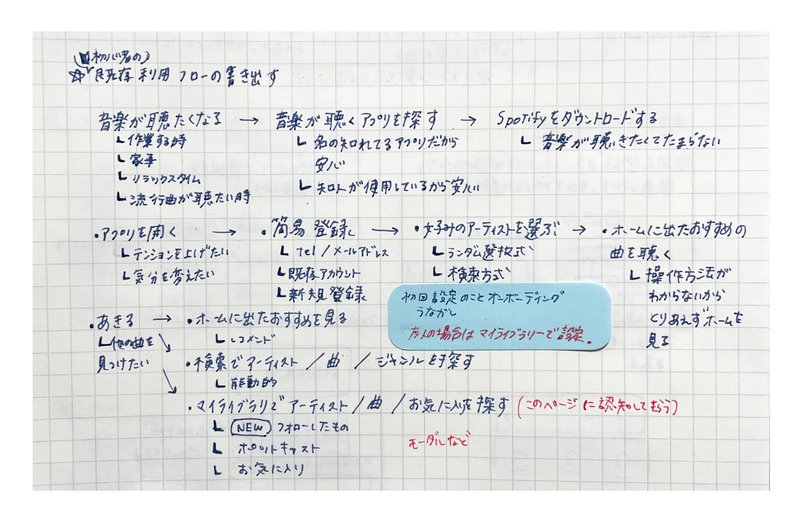 (初心者の)
☆既存利用フローの書き出す
音楽が聴たくなる → 音楽が聴くアプリを探す → Spotifyをダウントロードする
┗ 作業する時
┗ 家事
┗ リラックスタイム
┗ 流行曲が聴たい時
┗ 名の知れてるアプリだから
安心
┗ 知人が使用しているから安心
┗ 音楽が聴いきたくてたまらない
・アプリを開く → ・簡易登録 → ・好みのアーティストを選ぶ → ・ホームに出たおすすめの
曲を聴く
┗ テンションを上げたい
┗ 気分を変えたい
┗ tel/メールアドレス
┗ 既存アカウント
┗ 新規登録
┗ ランダム選択式
┗ 検索方式
┗ 操作方法が
わからないから
とりあえずホームを
見る
初回設定のことオンボーディング
うながし
友人の場合はマイライブラリーで設定。
・あきる → ・ホームに出たおすすめを見る
┗ 他の曲を
見つけたい
┗ レコメンド
・検索でアーティスト/曲/ジャンルを探す
┗ 能動的
・マイライブラリでアーティスト/曲/お気に入りを探す (このページに認知してもらう)
┗ NEW フォローしたもの
┗ ポットキャスト
┗ お気に入り
モーダルなど